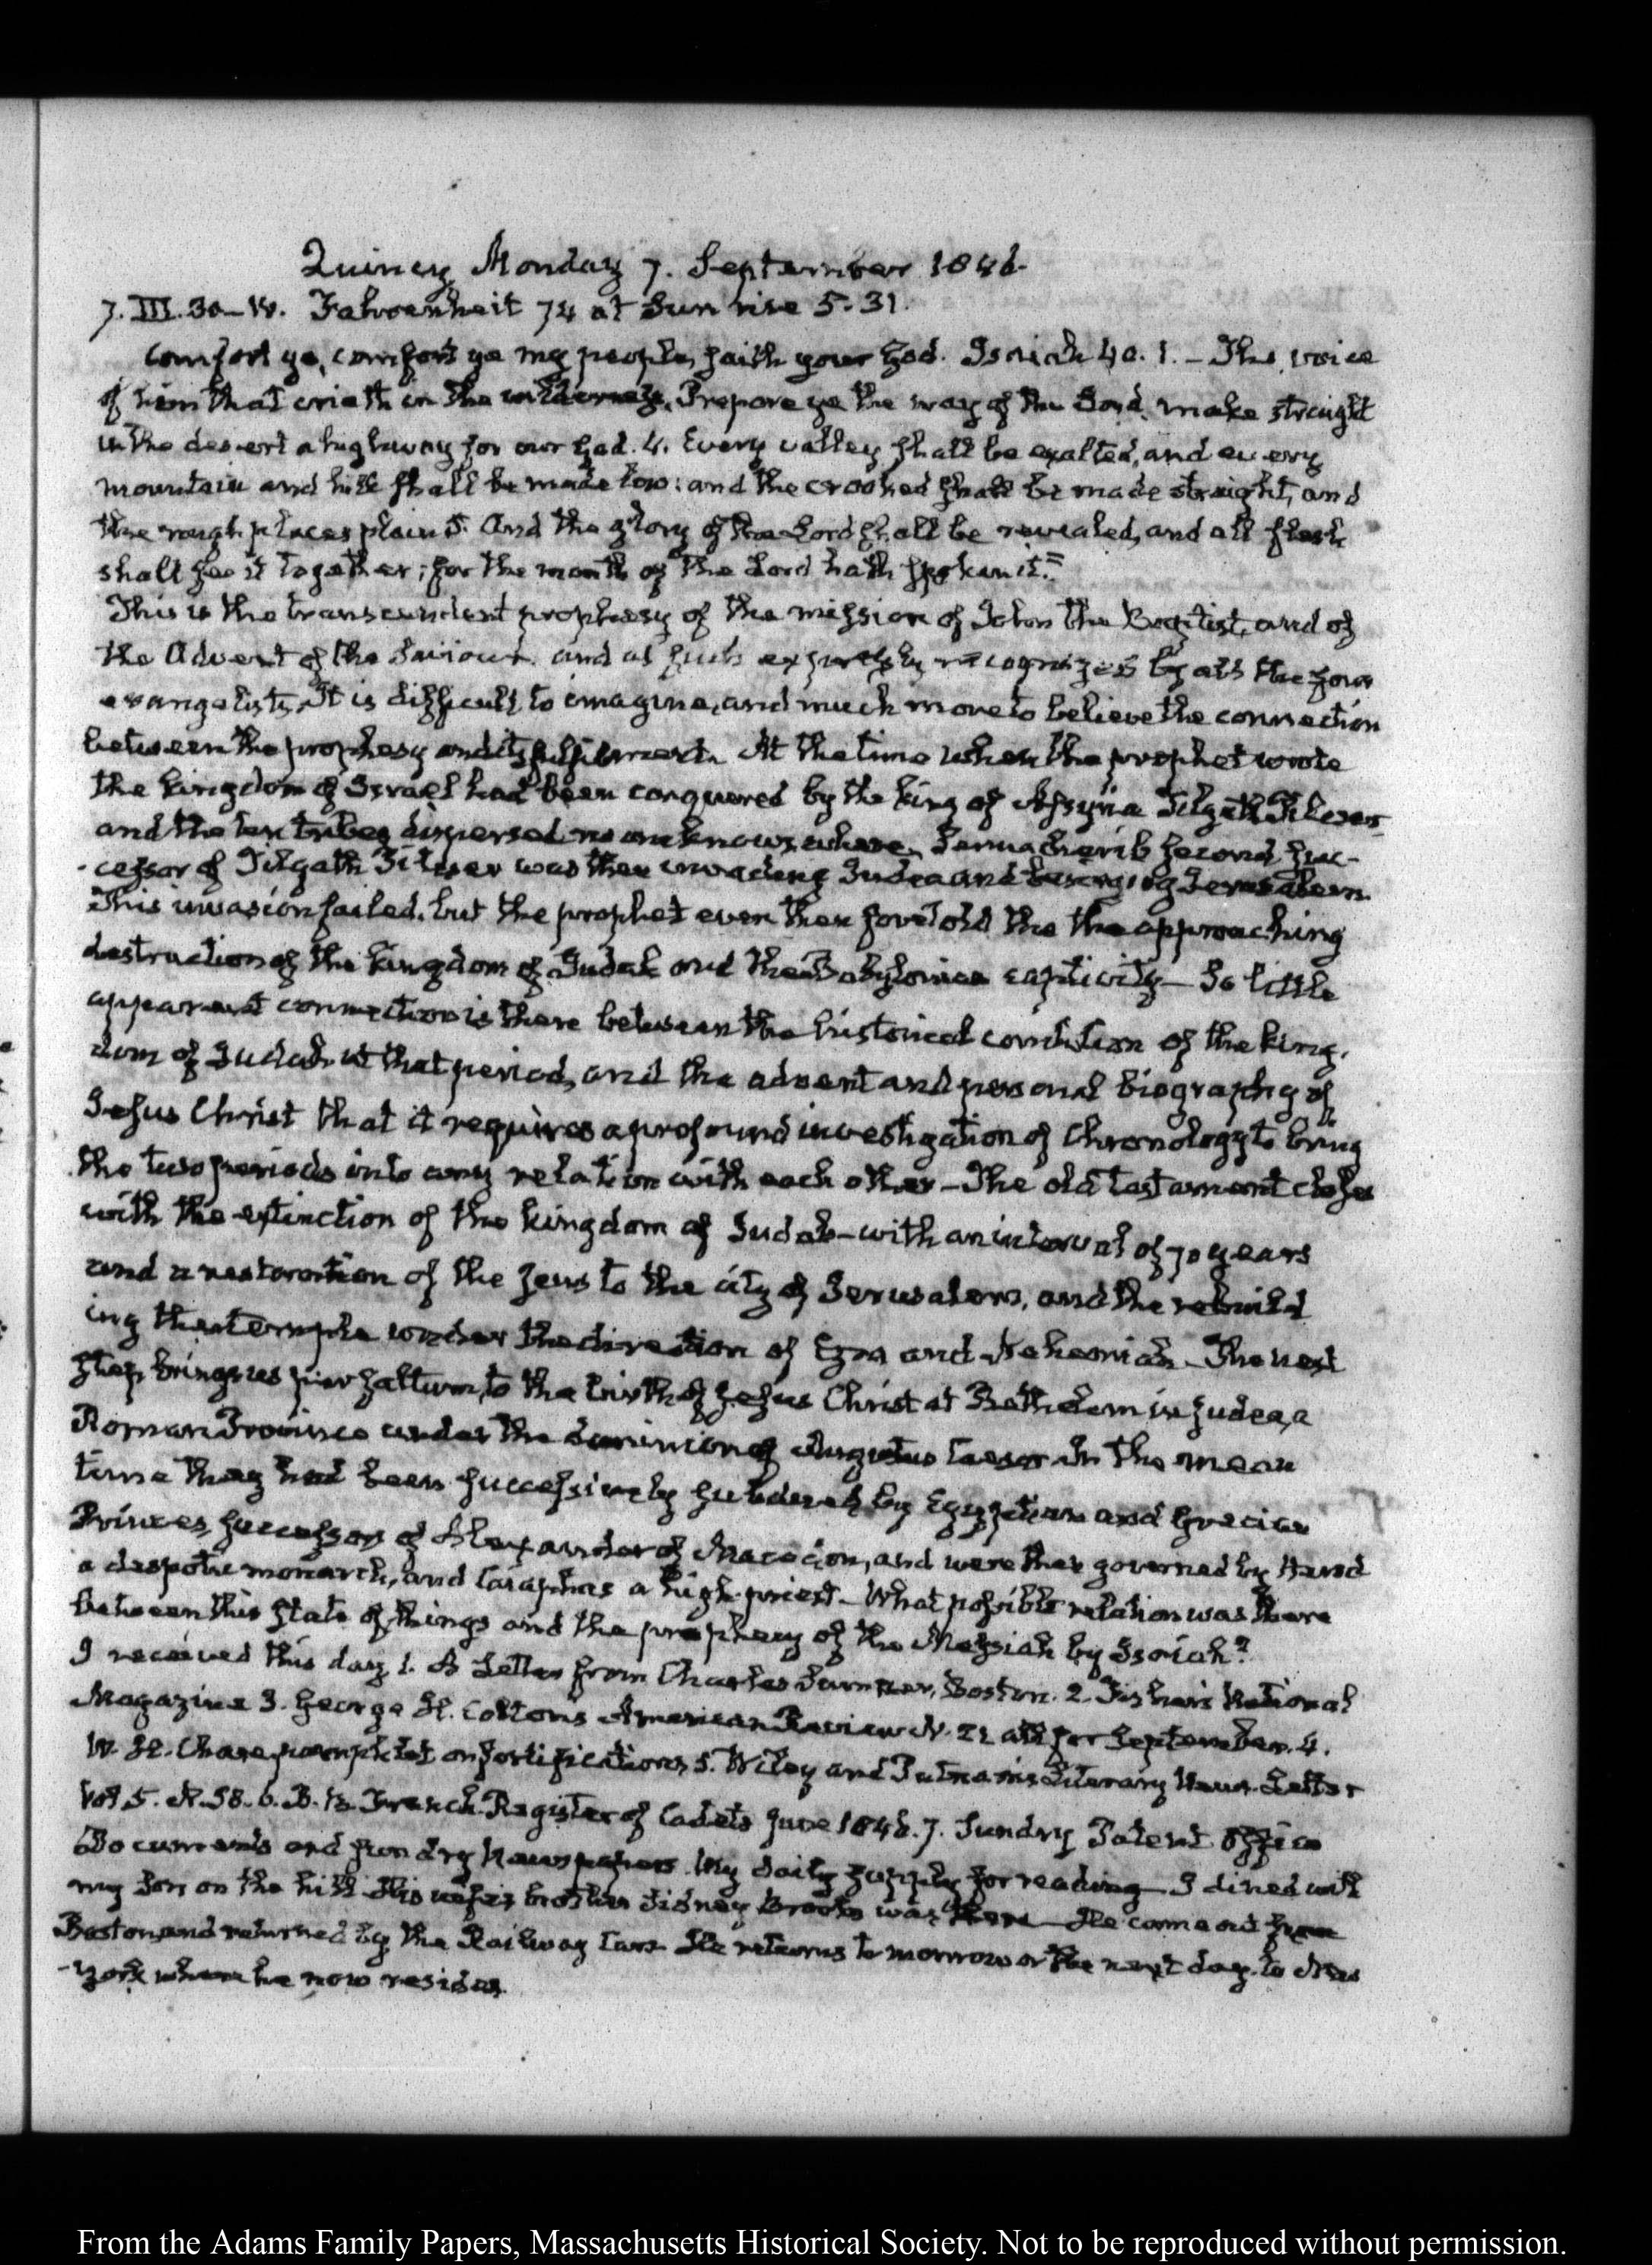 Quincy Monday 7. September 1846.
7. III.30–IV. Fahrenheit 74 at Sun rise 5.31.
Comfort ye, comfort ye my people, saith your God. Isaiah 40.1.– The voice
of him that crieth in the wilderness, Prepare ye the way of the Lord, make straight
in the desert a highway for our God. 4. Every valley shall be exalted, and every
mountain and hill shall be made low: and the crooked shall be made straight, and
the rough places plain 5. And the glory of the Lord shall be revealed, and all flesh
shall see it together; for the mouth of the Lord hath spoken it.=
This is the transcendent prophesy of the mission of John the Baptist, and of
the Advent of the Saviour and as such expressly recognized by all the four
evangelists. It is difficult to imagine, and much more to believe the connection
between the prophesy and its fulfilment. At the time when the prophet wrote
the kingdom of Israel had been conquered by the king of Assyria Tilgath Pileser
and the ten tribes dispersed no one knows where. Sennacherib second suc-
-cessor of Tilgath Pileser was then invading Judea and besieging Jerusalem.
This invasion failed, but the prophet even then foretold the the approaching
destruction of the kingdom of Judah and the Babylonian captivity– So little
apparent connection is there between the historical condition of the king-
dom of Judah at that period, and the advent and personal biography of
Jesus Christ that it requires a profound investigation of Chronology to bring
the two periods into any relation with each other– The old testament closes
with the extinction of the kingdom of Judah– with an interval of 70 years
and a restoration of the Jews to the city of Jerusalem, and the rebuild
ing the temple under the direction of Ezra and Nehemiah– The next
step brings us per saltum, to the birth of Jesus Christ at Bethlehem in Judea, a
Roman Province under the dominion of Augustus Caesar In the mean
time they had been successively subdued by Egyptian and Grecian
Princes, successors of Alexander of Macedon, and were then governed by Herod
a despotic monarch, and Caiaphas a high-priest– What possible relation was there
between this state of things and the prophecy of the Messiah by Isaiah?
I received this day 1. A Letter from Charles Sumner, Boston. 2. Fisher's National
Magazine 3. George H. Colton's American Review N. 21 all for September. 4.
W. H. Chase pamphlet on fortifications 5. Wiley and Putnam's Literary News-Letter
Vol 5. N. 58. 6. B. B. French Register of Cadets June 1846. 7. Sundry Patent Office
Documents and sundry Newspapers. My daily supply for reading– I dined with
my Son on the hill His wife's brother Sidney Brooks was there– He came out from
Boston, and returned by the Railway Cars He returns to morrow or the next day to New
-York where he now resides.
From the Adams Family Papers, Massachusetts Historical Society. Not to be reproduced without permission.